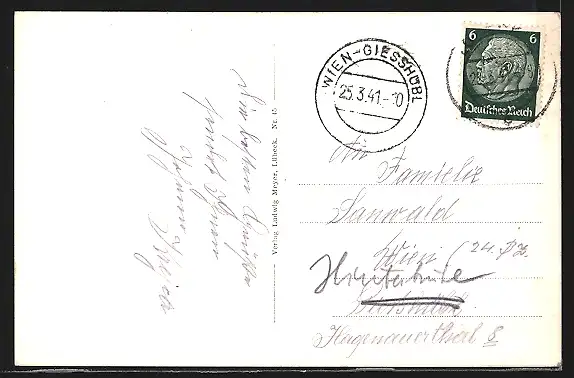 Die besten Grüße
sendet Ihnen
WIEN-GIESSHÜBL
25.3.41.-10
6 6
Deutsches Reich
Verlag Ludwig Meyer, Lübeck. Nr. 15
An
Familie
Sanwald
Wien (24.
Hinterbrühl
Hagenauerthal 8